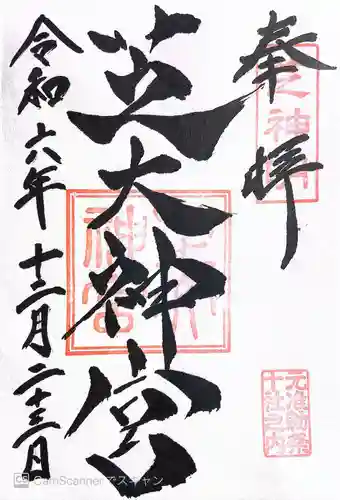 奉拝
芝大神宮
令和六年十二月二十三日
元准勅祭
十社之内
CS CamScanner でスキャン